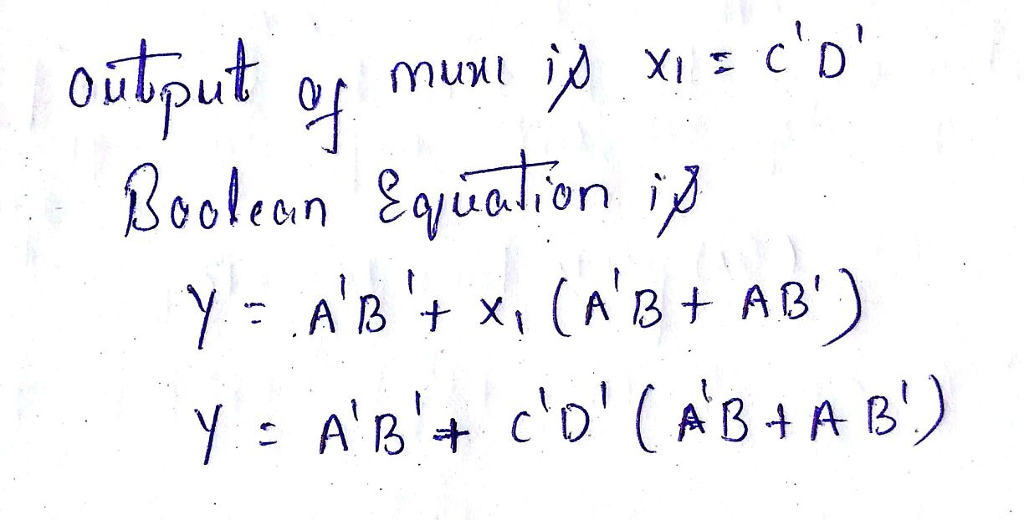 output of mux1 is x1 = C'D'
Boolean Equation is
Y = A'B' + x1 (A'B + AB')
Y = A'B' + C'D' (A'B + AB')